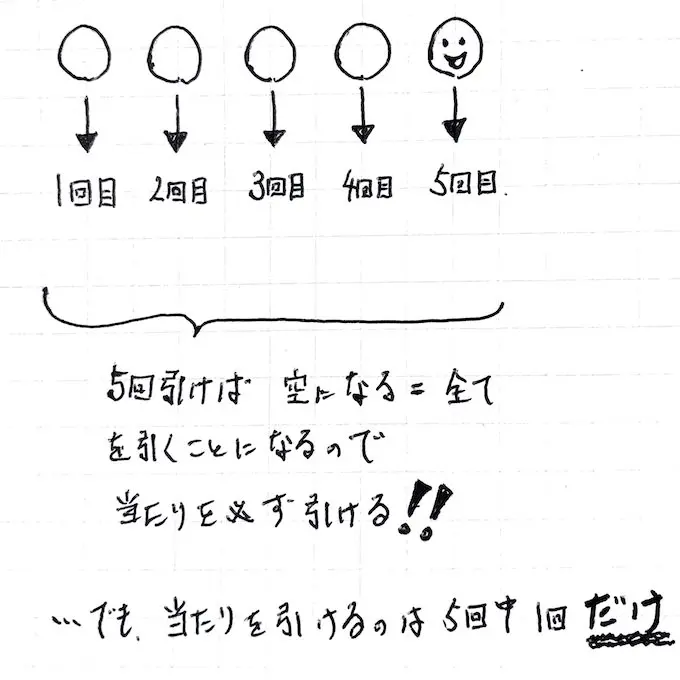 1回目 2回目 3回目 4回目 5回目.
5回引けば 空になる = 全て
を引くことになるので
当たりを必ず引ける!!
…でも、当たりを引けるのは 5回中 1回 だけ